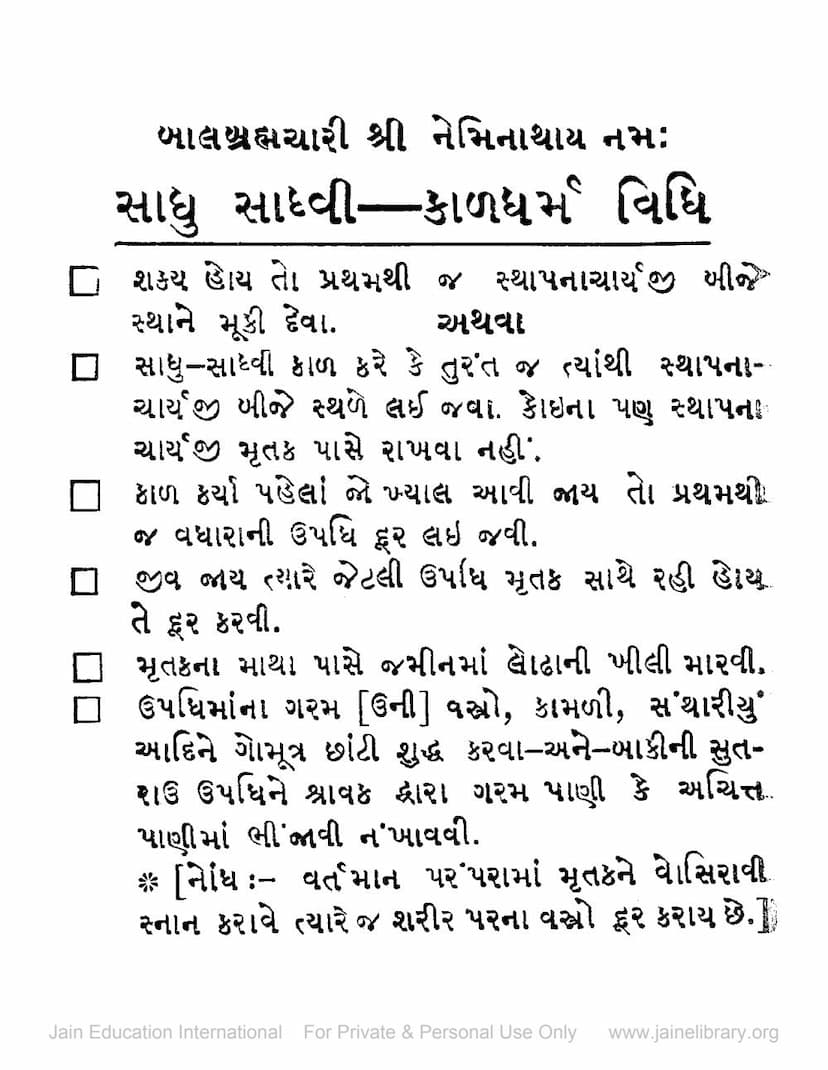 બાલબ્રહ્મચારી શ્રી નેમિનાથાય નમઃ
સાધુ સાધ્વી—કાળધર્મ વિધિ
શકય હોય તો પ્રથમથી જ સ્થાપનાચાર્યજી બીજે
સ્થાને મૂકી દેવા. અથવા
સાધુ–સાધ્વી કાળ કરે કે તુરંત જ ત્યાંથી સ્થાપના-
ચાર્યજી બીજે સ્થળે લઈ જવા. કોઇના પણ સ્થાપના
ચાર્યજી મૃતક પાસે રાખવા નહીં.
કાળ કર્યા પહેલાં જો ખ્યાલ આવી જાય તો પ્રથમથી
જ વધારાની ઉપધિ દૂર લઇ જવી.
જીવ જાય ત્યારે જેટલી ઉપધિ મૃતક સાથે રહી હોય
તે દૂર કરવી.
મૃતકના માથા પાસે જમીનમાં લોઢાની ખીલી મારવી.
ઉપધિમાંના ગરમ [ઉની] વસ્ત્રો, કામળી, સંથારીયું
આદિને ગોમૂત્ર છાંટી શુદ્ધ કરવા–અને–બાકીની સુત-
રાઉ ઉપધિને શ્રાવક દ્વારા ગરમ પાણી કે અચિત્ત
પાણીમાં ભીંજાવી નંખાવવી.
* [નોંધ :– વર્તમાન પરંપરામાં મૃતકને વોસિરાવી
સ્નાન કરાવે ત્યારે જ શરીર પરના વસ્ત્રો દૂર કરાય છે.]
Jain Education International For Private & Personal Use Only www.jainelibrary.org